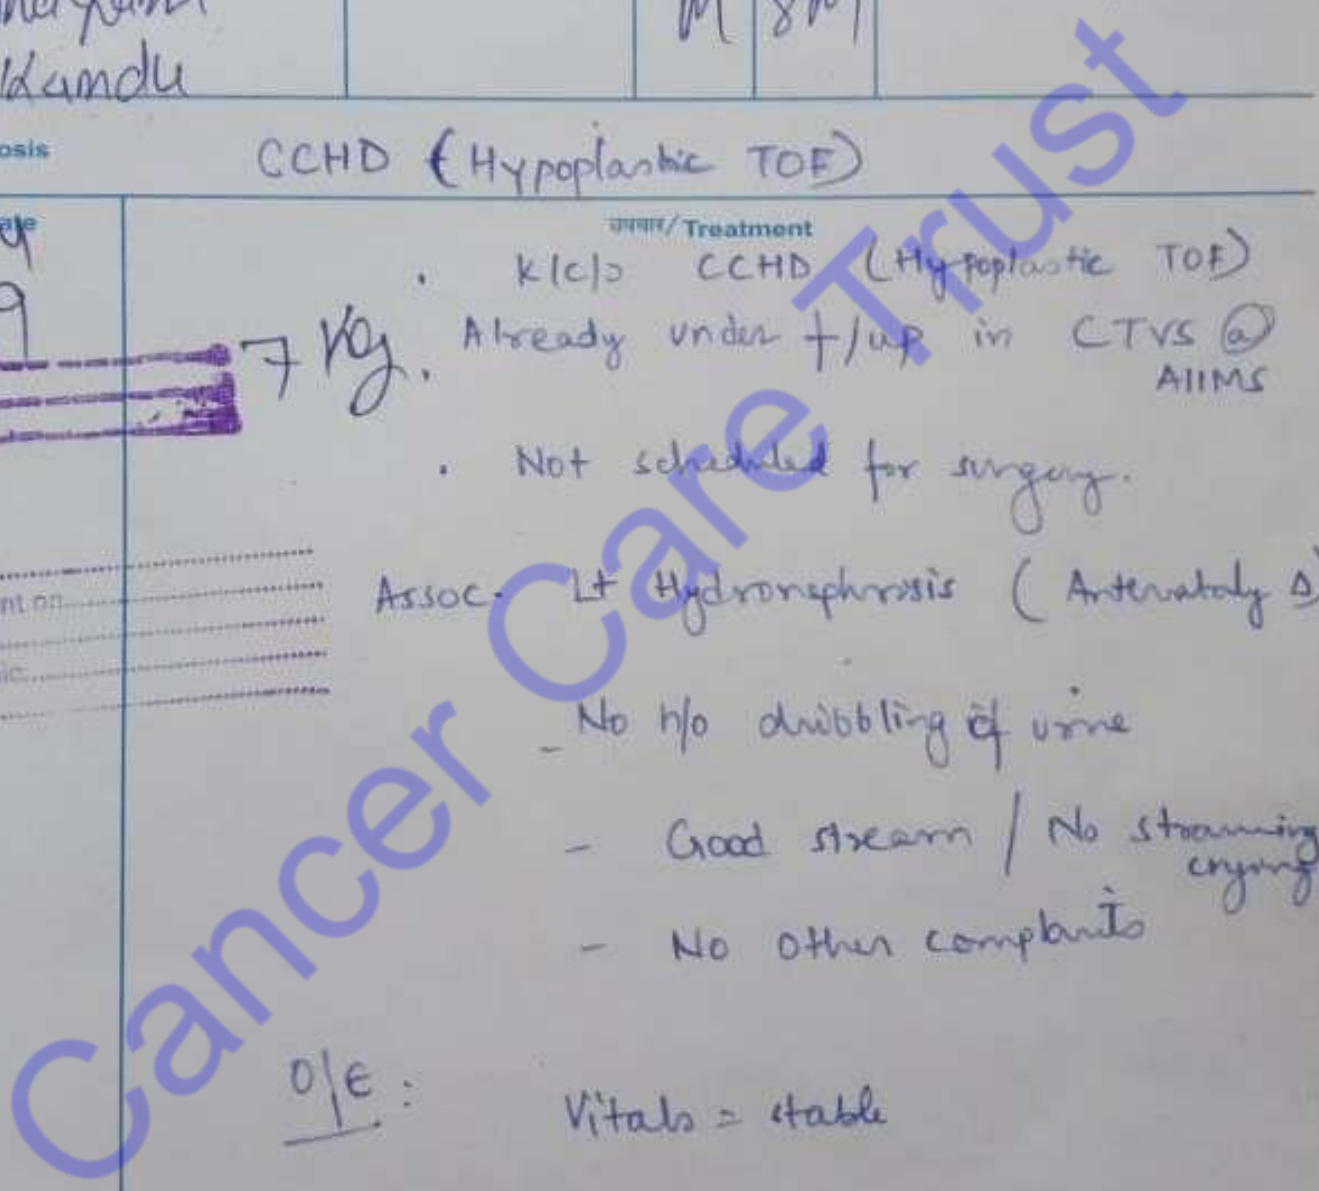 Kamdu
M 8M
osis CCHD (Hypoplastic TOF)
उपचार/Treatment
K/c/o CCHD (Hypoplastic TOF)
7 Kg. Already under f/up in CTVS @
AIIMS
Not scheduled for surgery.
Assoc. Lt Hydronephrosis (Antenataly Δ)
nt on
- No h/o dribbling of urine
- Good stream / No straining
crying
- No other complaints
O/E : Vitals = stable
Cancer Care Trust